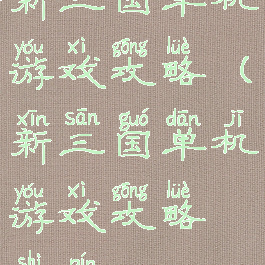 新三国单机
yóu xì gōng lüè
游戏攻略（
xīn sān guó dān jī
新三国单机
yóu xì gōng lüè
游戏攻略
shì pín